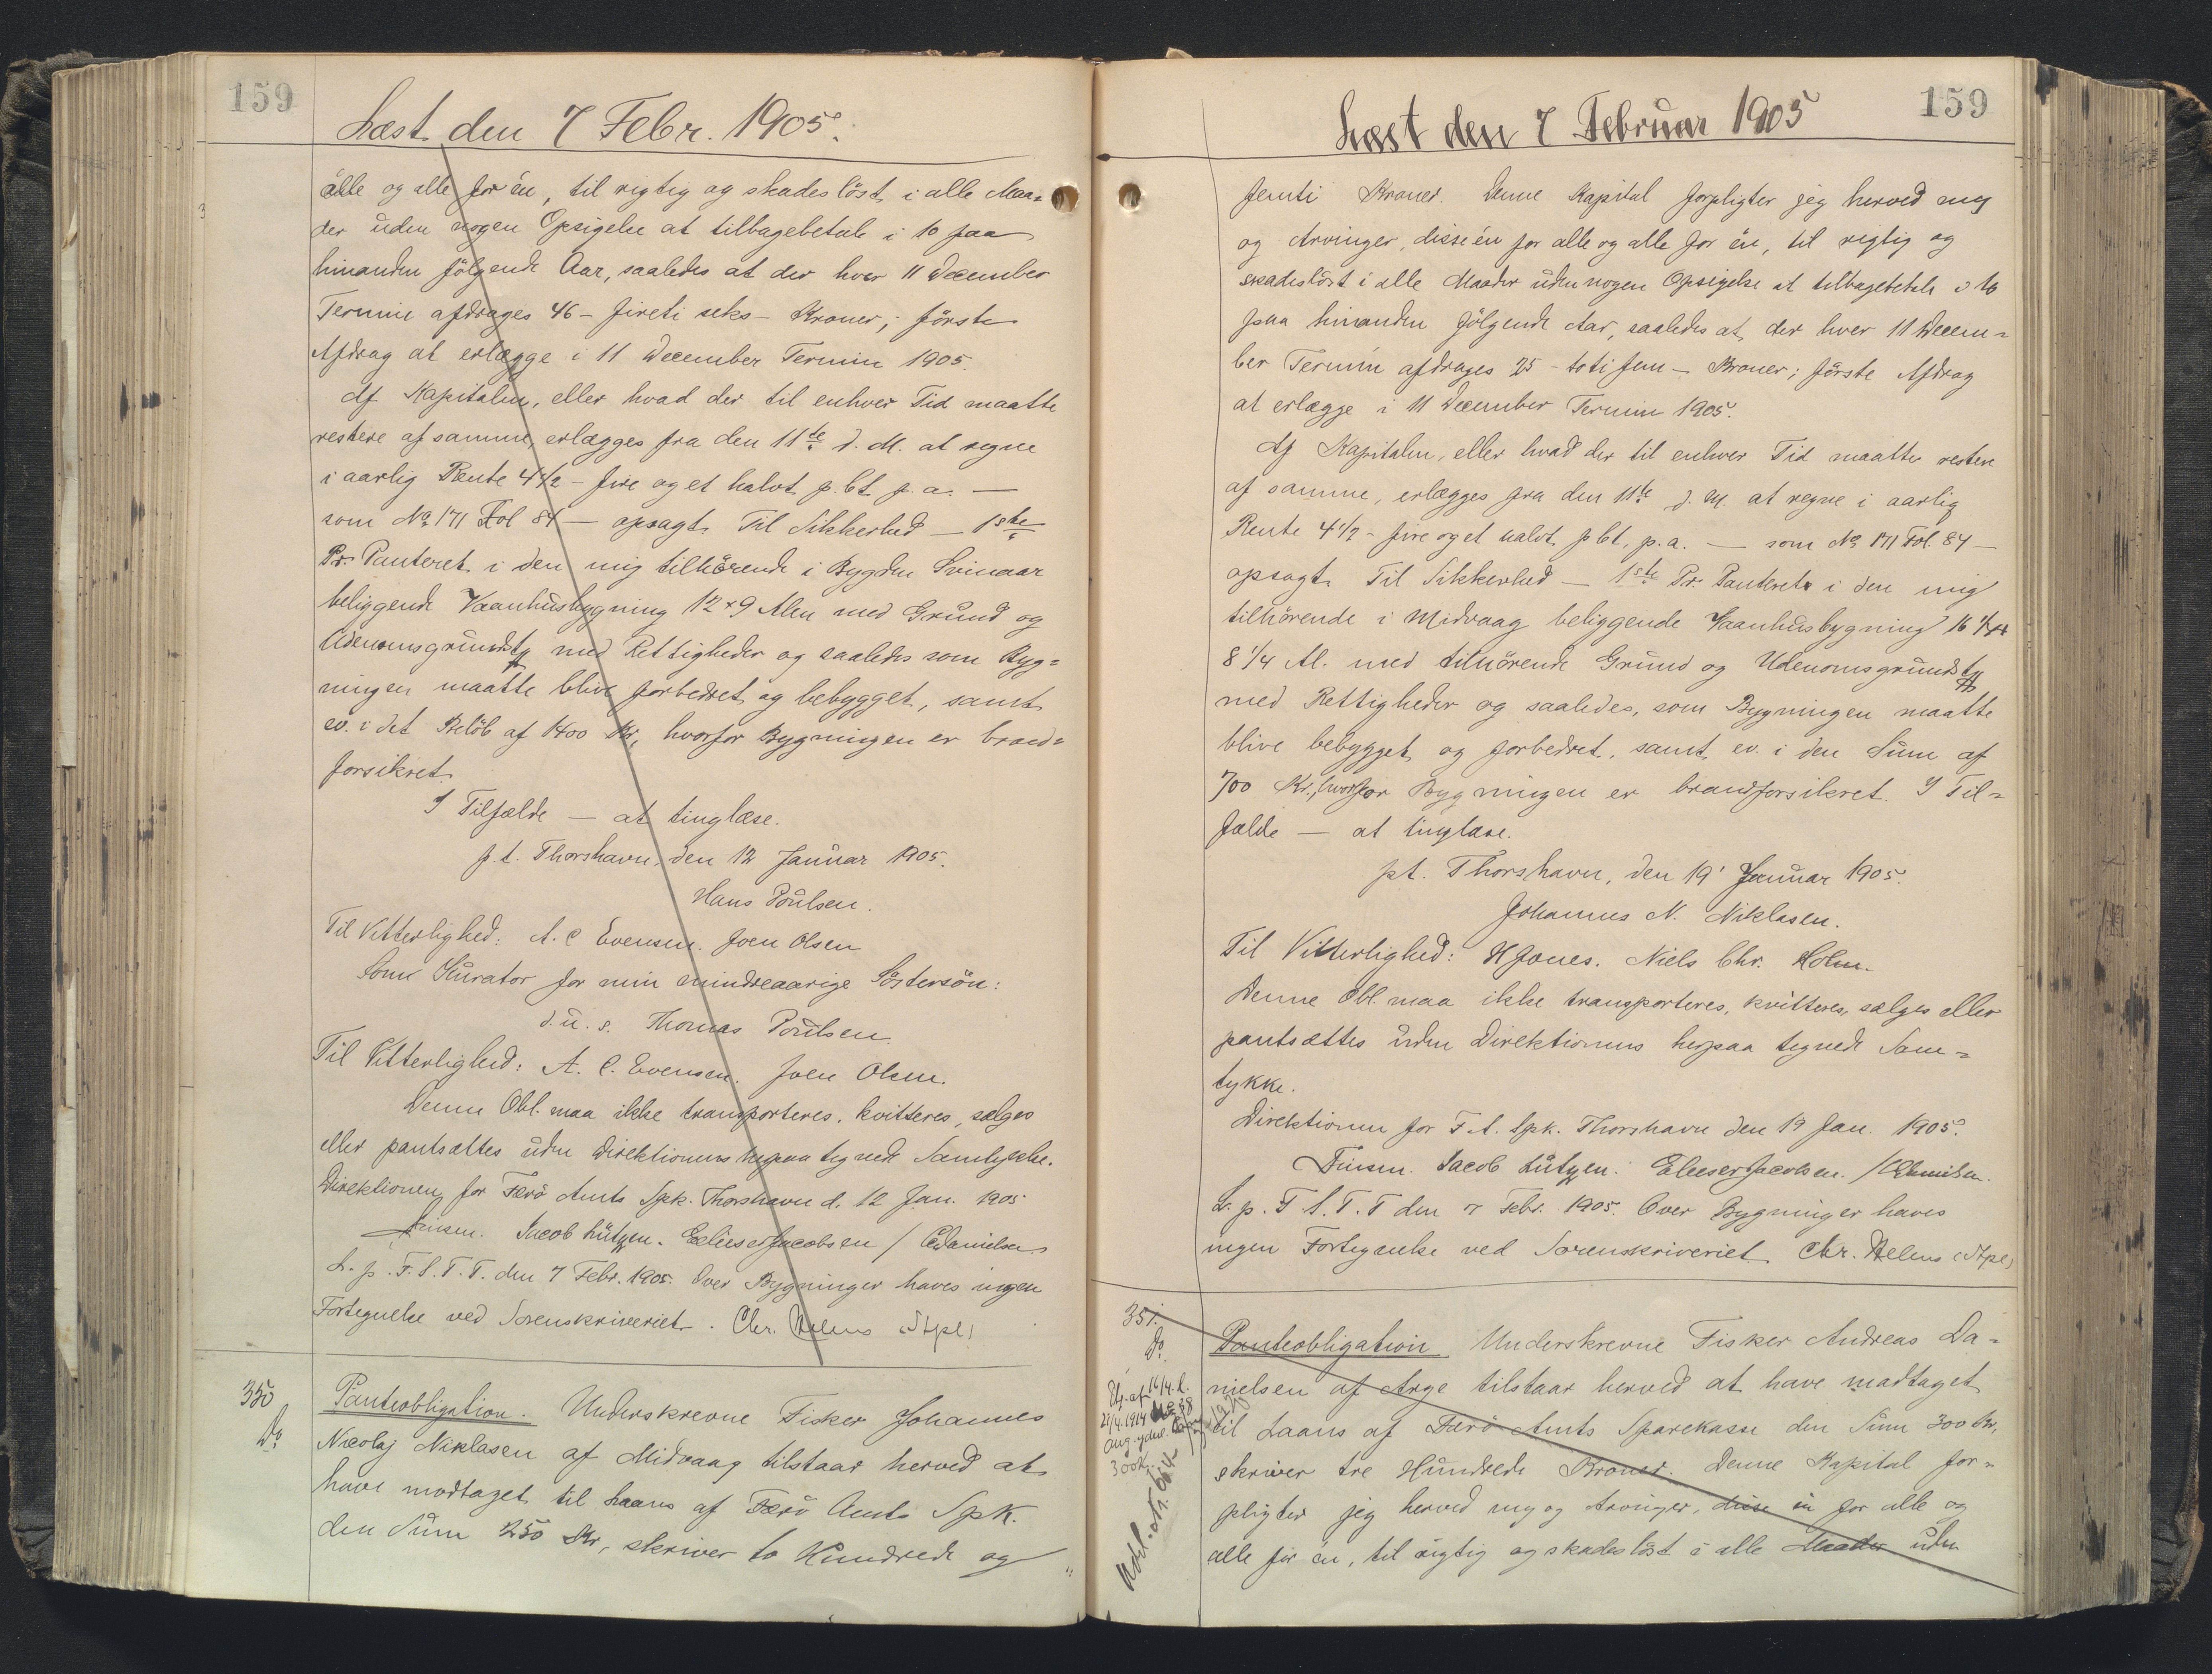 159
Læst den 7 Febr. 1905.
alle og alle for én, til rigtig og skadesløst i alle Maa=
der uden nogen Opsigelse at tilbagebetale i 10 paa
hinanden følgende Aar, saaledes at der hver 11 December
Termin afdrages 46 - fireti seks - Kroner; første
Afdrag at erlægge i 11 December Termin 1905.
Af Kapitalen, eller hvad der til enhver Tid maatte
restere af samme, erlægges fra den 11te d. M. at regne
i aarlig Rente 4 1/2 - fire og et halvt p. Ct p. a. —
som No 171 Fol 84 — opsagt. Til Sikkerhed — 1ste
Pr. Panteret i den mig tilhørende i Bygden Svinaar
beliggende Vaanhusbygning 12 x 9 Alen med Grund og
Udenomsgrundstk med Rettigheder og saaledes som Byg=
ningen maatte blive forbedret og bebygget, samt
ev. i det Beløb af 1400 Kr, hvorfor Bygningen er brand=
forsikret.
I Tilfælde — at tinglæse.
p.t. Thorshavn, den 12 Januar 1905.
Hans Poulsen.
Til Vitterlighed: A. C Evensen. Joen Olsen
Som Kurator for min mindreaarige Søstersøn:
d. u. s. Thomas Poulsen
Til Vitterlighed: A. C. Evensen. Joen Olsen.
Denne Obl. maa ikke transporteres, kvitteres, sælges
eller pantsættes uden Direktionens herpaa tegnede Samtykke.
Direktionen for Færø Amts Spk. Thorshavn d. 12 Jan. 1905
Finsen. Jacob Lützen. Elieser Jacobsen / CDanielsen
L. p. F. S. T. T. den 7 Febr. 1905. Over Bygninger haves ingen
Fortegnelse ved Sorenskriveriet. Chr. Helms (Stpl)
350
Do
Panteobligation. Underskrevne Fisker Johannes
Nicolaj Niklasen af Midvaag tilstaar herved at
have modtaget til Laans af Færø Amts Spk.
den Sum 250 Kr, skriver to Hundrede og
159
Læst den 7 Februar 1905
femti Kroner. Denne Kapital forpligter jeg herved mig
og Arvinger, disse én for alle og alle for én, til rigtig og
skadesløst i alle Maader uden nogen Opsigelse at tilbagebetale i 10
paa hinanden følgende Aar, saaledes at der hver 11 Decem=
ber Termin afdrages 25 - toti fem - Kroner; første Afdrag
at erlægge i 11 December Termin 1905.
Af Kapitalen, eller hvad der til enhver Tid maatte restere
af samme, erlægges fra den 11te d. M. at regne i aarlig
Rente 4 1/2 - fire og et halvt p Ct. p. a. — som No 171 Fol. 84 —
opsagt. Til Sikkerhed — 1ste Pr. Panteret i den mig
tilhørende i Midvaag beliggende Vaanhusbygning 16
8 1/4 Al. med tilhørende Grund og Udenomsgrundstk
med Rettigheder og saaledes, som Bygningen maatte
blive bebygget og forbedret, samt ev. i den Sum af
700 Kr., hvorfor Bygningen er brandforsikret. I Til=
fælde — at tinglæse.
pt. Thorshavn, den 19' Januar 1905.
Johannes N. Niklasen.
Til Vitterlighed: HJones. Niels Chr. Holm.
Denne Obl. maa ikke transporteres, kvitteres, sælges eller
pantsættes uden Direktionens herpaa tegnede Sam=
tykke.
Direktionen for F. A. Spk. Thorshavn den 19 Jan. 1905.
Finsen. Jacob Lützen. Elieser Jacobsen. / CDanielsen.
L. p. F. S. T. T den 7 Febr. 1905. Over Bygninger haves
ingen Fortegnelse ved Sorenskriveriet Chr. Helms (Stpl)
351.
Do.
21/4.1914
300 Kr.
Panteobligation Underskrevne Fisker Andreas Da=
nielsen af Arge tilstaar herved at have modtaget
til Laans af Færø Amts Sparekasse den Sum 300 Kr,
skriver tre Hundrede Kroner. Denne Kapital for=
pligter jeg herved mig og Arvinger, disse én for alle og
alle for én, til rigtig og skadesløst i alle Maader uden